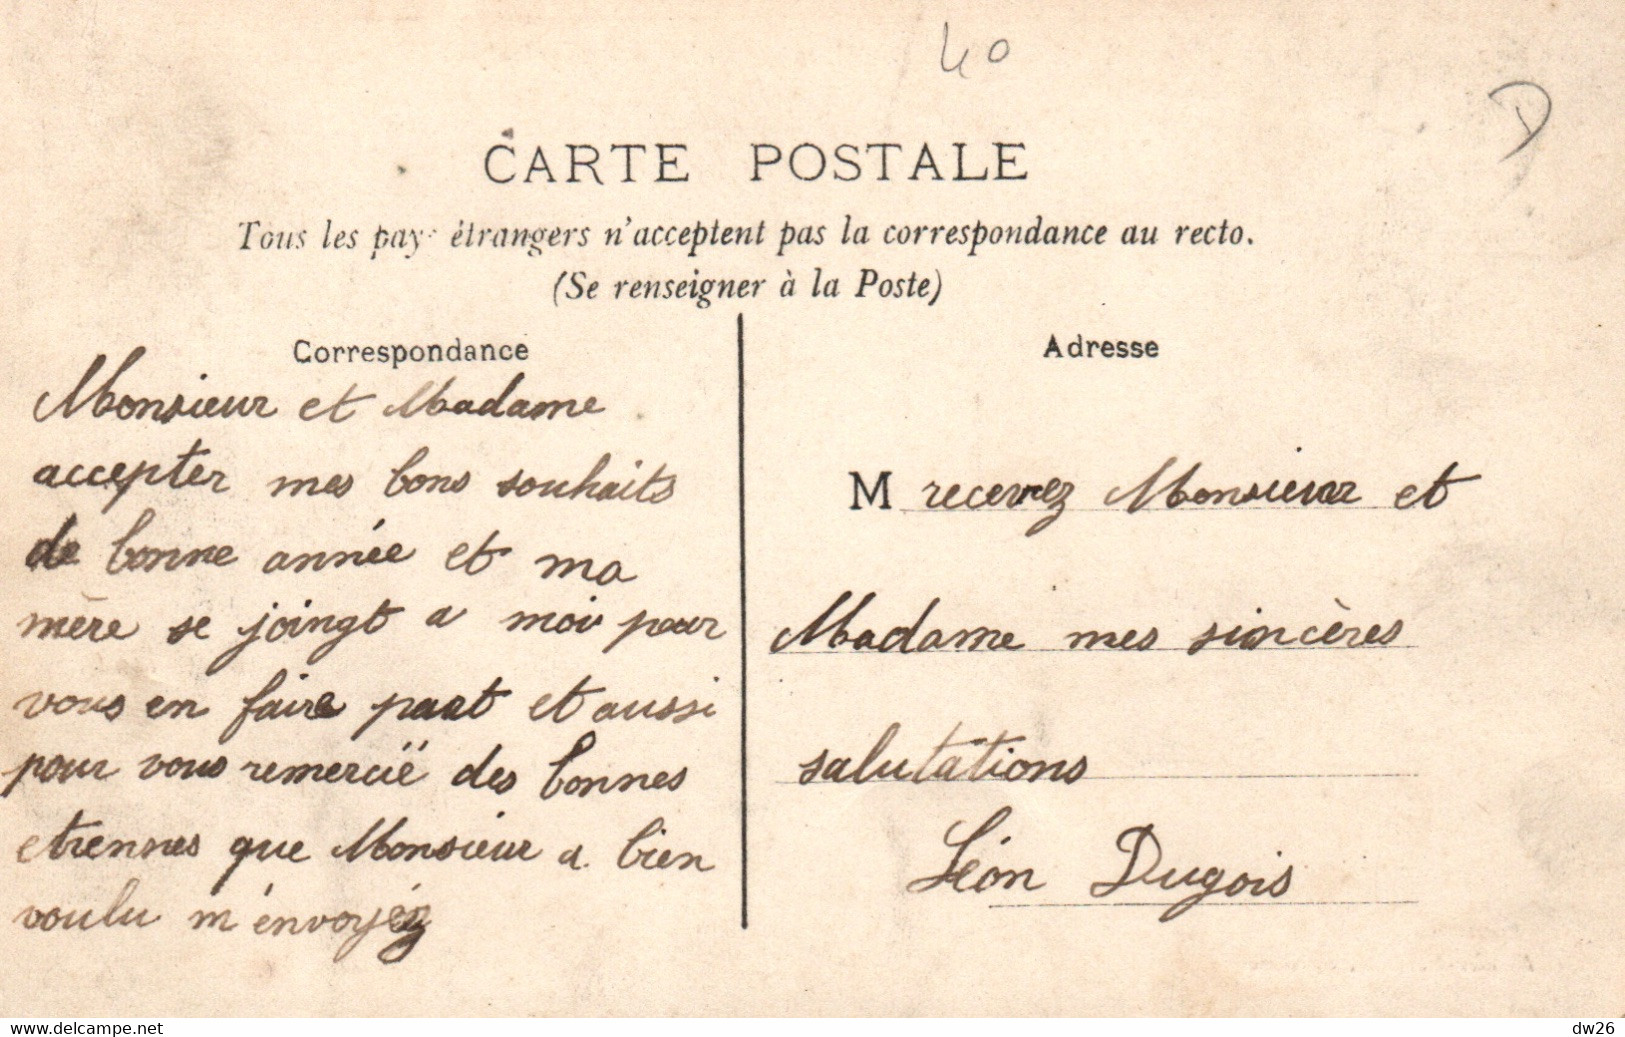 40
D
CARTE POSTALE
Tous les pays étrangers n'acceptent pas la correspondance au recto.
(Se renseigner à la Poste)
Correspondance
Monsieur et Madame
accepter mes bons souhaits
de bonne année et ma
mère se joingt a moi pour
vous en faire part et aussi
pour vous remercië des bonnes
etrennes que Monsieur a bien
voulu m'envoyéz
Adresse
M recevez Monsieur et
Madame mes sincères
salutations
Léon Dugois
https://www.delcampe.net
dw26